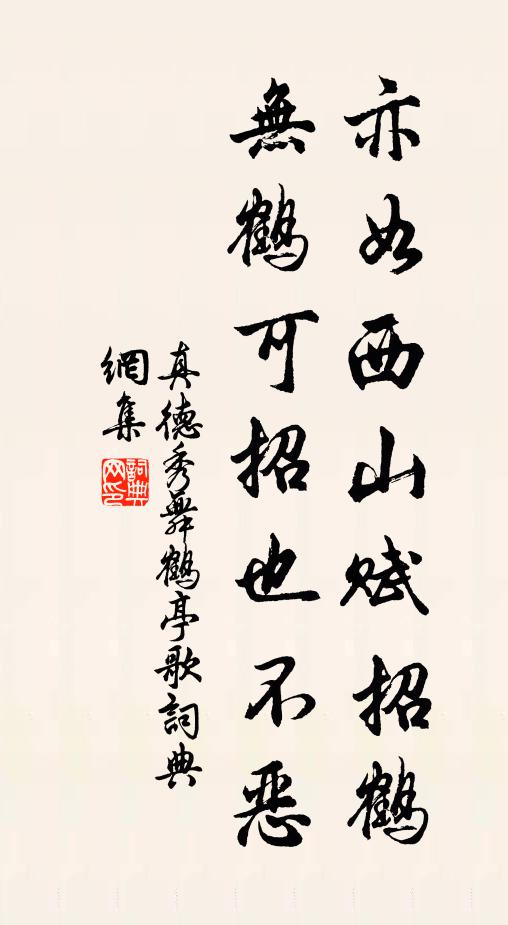 亦如西山賦招鶴
無鶴可招也不惡
真德秀舞鶴亭歌詞典
網集
詞典
网印